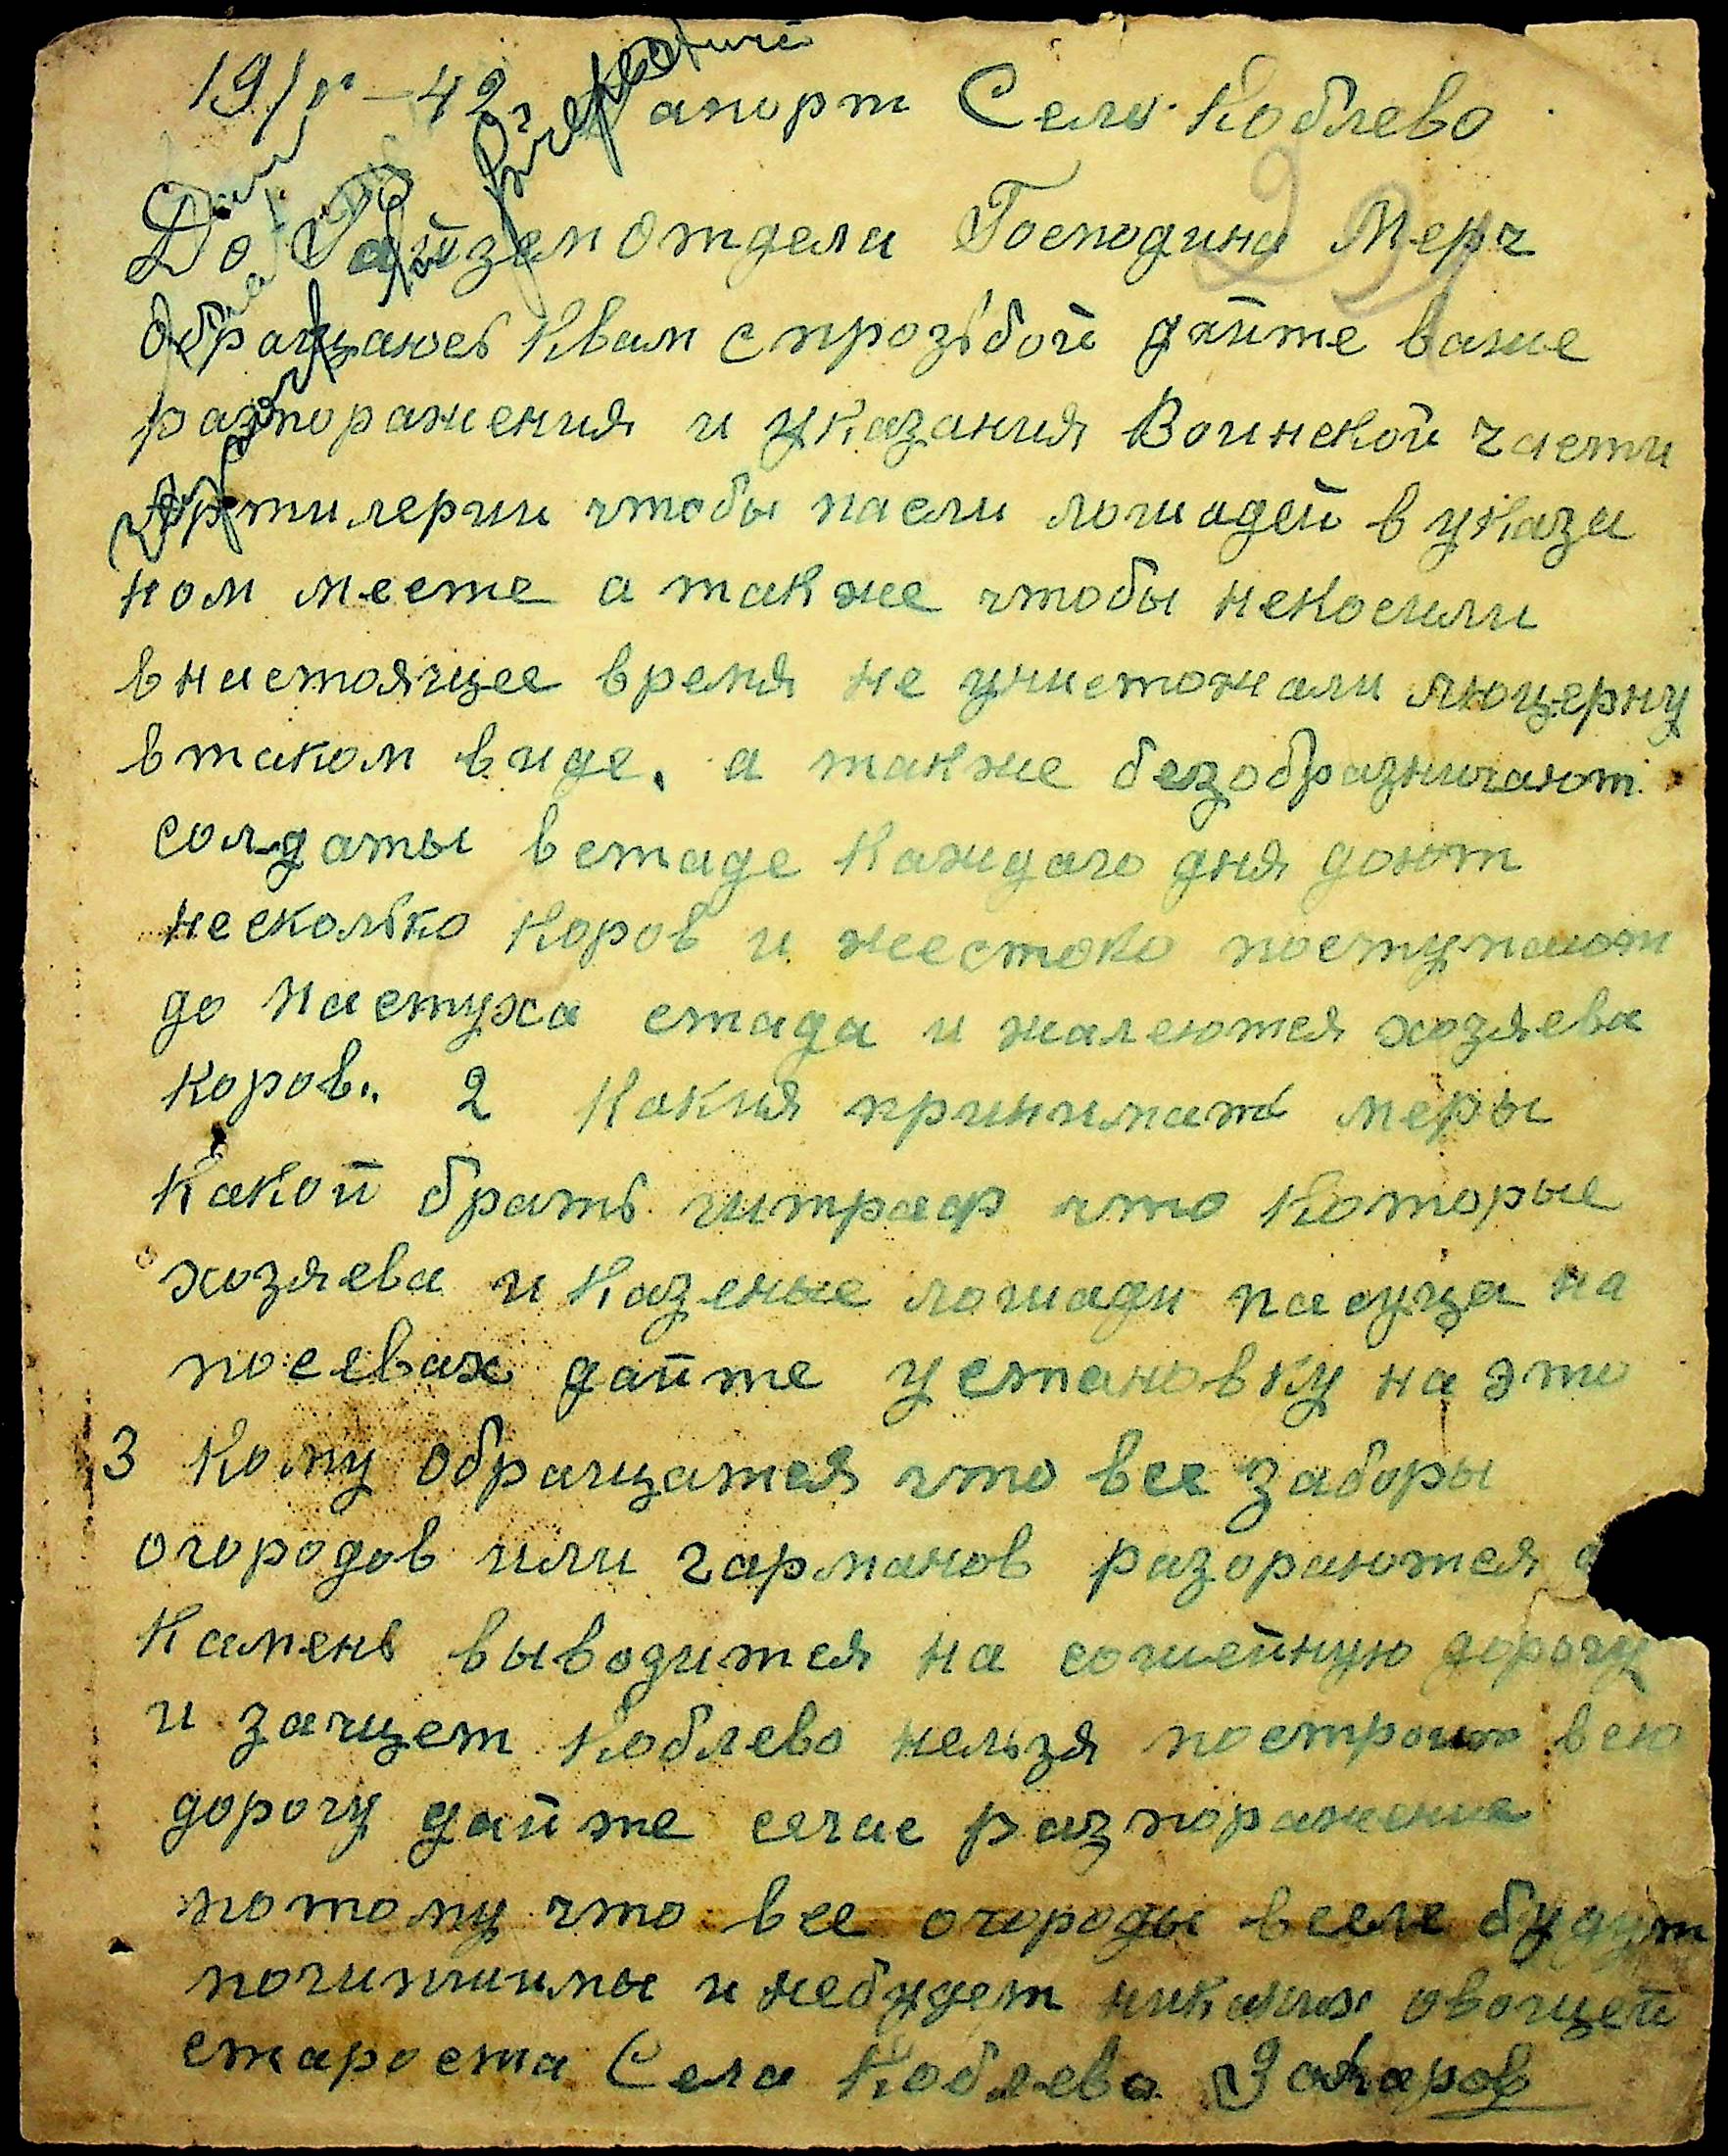 19/V-42г Рапорт Село Коблево
До Райземотдела Господина Мерч
обращаюсь Квам с прозьбой дайте ваше
разпоражения и указания Воинской части
Артилерии чтобы пасли лошадей в указа
ном месте а также чтобы некосили
внастоящее время не уничтожали люцерну
втаком виде. а также безобразничают
солдаты встаде Каждого дня доют
несколько Коров и жестоко поступают
до пастуха стада и жалеются хозяева
Коров. 2 Какия принимать меры
Какой брать штраф что Которые
хозяева и Казеные лошади пасуца на
посевах дайте установку на это
3 Кому обращатся что все заборы
огородов или гарманов разораются а
Камень выводится на сошейную дорогу
и защет Коблево нельзя построить всю
дорогу дайте сечас разпоражение
потому что все огороды вселе будут
и небудет никаких овощей
староста Села Коблево Захаров